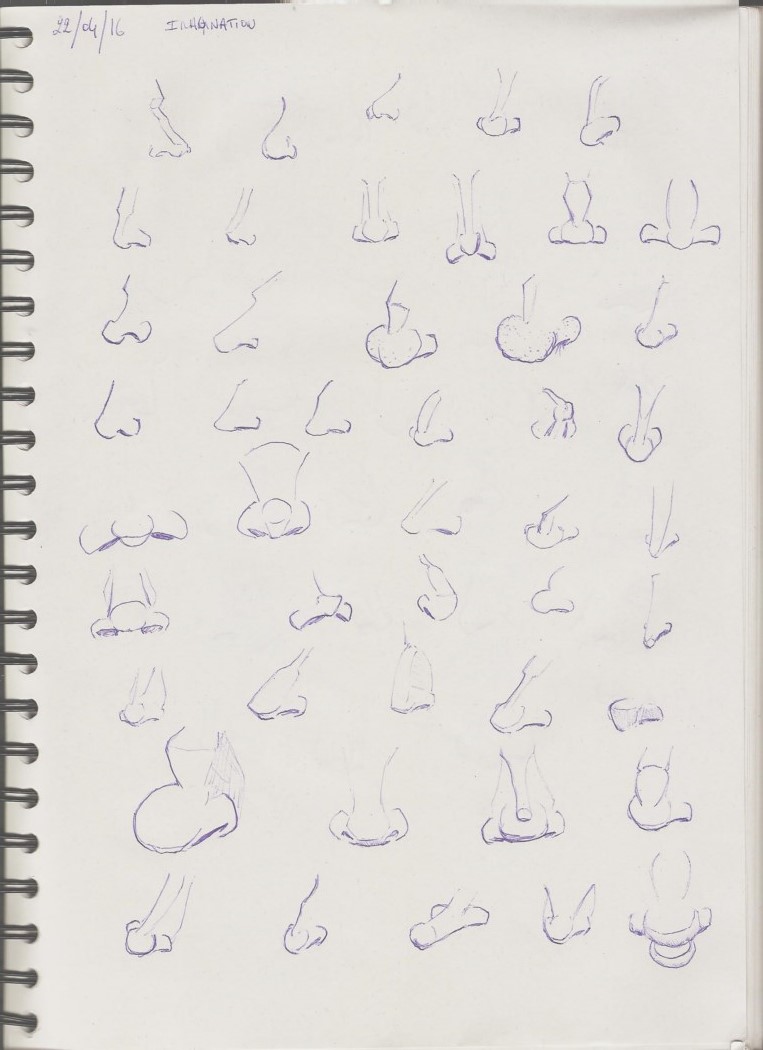 22/04/16 IMAGINATION